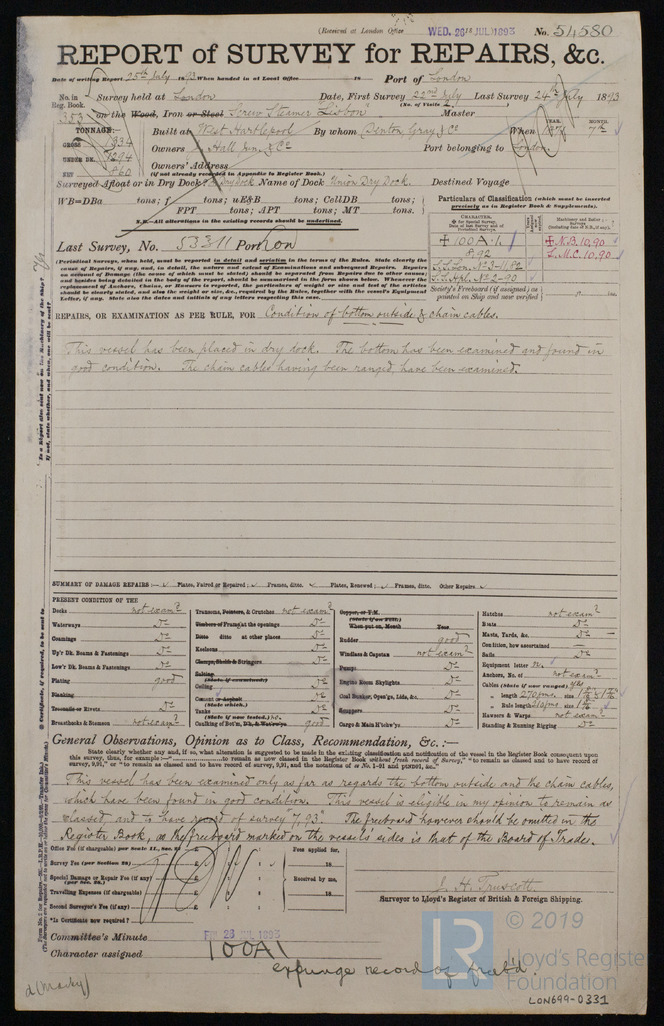 (Received at London Office WED. 26 JUL 1893 No. 54580
REPORT of SURVEY for REPAIRS, &c.
Date of writing Report 25th July 1893 When handed in at Local Office 18 Port of London
No. in Reg. Book. Survey held at London Date, First Survey 22nd July Last Survey 24th July 1893
(No. of Visits 2)
353 on the Wood, Iron or Steel Screw Steamer "Lisbon" Master
TONNAGE:— Built at West Hartlepool By whom Denton Gray & Co When YEAR. MONTH.
GROSS 1334 Owners Hall Jun. & Co Port belonging to London.
UNDER DK. 1294 Owners' Address
NET 860 (If not already recorded in Appendix to Register Book.)
Surveyed Afloat or in Dry Dock? Dry dock Name of Dock Union Dry Dock. Destined Voyage
WB=DBa tons; f tons; uE&B tons; CellDB tons;
FPT tons; APT tons; MT tons.
N.B.—All alterations in the existing records should be underlined.
Particulars of Classification (which must be inserted precisely as in Register Book & Supplements).
Last Survey, No. 53311 Port Lon
CHARACTER.
100A1
8,92
S.S.Lon. No 3-11.82
S.S.Hrl. No 2-90
N.B. 10,90
L.M.C. 10,90
Society's Freeboard (if assigned) as painted on Ship and now verified
(Periodical Surveys, when held, must be reported in detail and seriatim in the terms of the Rules. State clearly the
cause of Repairs, if any, and, in detail, the nature and extent of Examinations and subsequent Repairs. Repairs
on account of Damage (the cause of which must be stated) should be separated from Repairs due to other causes;
and besides being detailed in the body of the report, should be summarized in the form shown below. Whenever the
replacement of Anchors, Chains, or Hawsers is reported, the particulars of weight or size and test of the articles
should be clearly stated, and also the weight or size, &c., required by the Rules, together with the vessel's Equipment
Letter, if any. State also the dates and initials of any letters respecting this case.
REPAIRS, OR EXAMINATION AS PER RULE, FOR Condition of bottom outside & chain cables.
This vessel has been placed in dry dock. The bottom has been examined and found in
good condition. The chain cables having been ranged, have been examined.
SUMMARY OF DAMAGE REPAIRS:— Plates, Faired or Repaired; Frames, ditto. Plates, Renewed; Frames, ditto. Other Repairs
PRESENT CONDITION OF THE
Decks not exam?
Waterways Do
Coamings Do
Up'r Dk. Beams & Fastenings Do
Low'r Dk. Beams & Fastenings Do
Plating good
Planking
Treenails or Rivets Do
Breasthooks & Stemson not exam?
Transoms, Pointers, & Crutches not exam?
Timbers of Frame at the openings Do
Ditto ditto at other places Do
Keelsons Do
Clamps, Shelfs & Stringers Do
Salting
(State if examined)
Ceiling Do
Cement or Asphalt Do
(State which.)
Tanks Do
(State if now tested.) no.
Caulking of Bot'm, D'k, & Waterways good
Copper, or Y.M.
(State if on Felt.)
When put on, Month Year
Rudder good
Windlass & Capstan not exam?
Pumps Do
Engine Room Skylights Do
Coal Bunker, Open'gs, Lids, &c. Do
Scuppers Do
Cargo & Main H'tchw'ys Do
Hatches not exam?
Boats Do
Masts, Yards, &c. Do
Condition, how ascertained
Sails Do
Equipment letter
Anchors, No. of not exam?
Cables (State if now ranged) yes
" length 270 fms. size
" Rule length 210 fms. size
Hawsers & Warps not exam?
Standing & Running Rigging Do
General Observations, Opinion as to Class, Recommendation, &c. :—
State clearly whether any, and if so, what alteration is suggested to be made in the existing classification and notification of the vessel in the Register Book consequent upon
this survey, thus, for example :—" to remain as now classed in the Register Book without fresh record of Survey," "to remain as classed and to have record of
survey, 9,91," or "to remain as classed and to have record of survey, 9,91, and the notations of ss No. 1-91 and ptND91, &c."
This vessel has been examined only as far as regards the bottom outside and the chain cables,
which have been found in good condition. This vessel is eligible in my opinion to remain as
classed and to have record of survey "7,93". The freeboard however should be omitted in the
Register Book, as the freeboard marked on the vessel's sides is that of the Board of Trade.
Office Fee (if chargeable) per Scale II., Sec. £ : : Fees applied for,
Survey Fee (per Section 28) £ : : 18
Special Damage or Repair Fee (if any) £ : : Received by me,
(per Sec. 28.)
Travelling Expenses (if chargeable) £ : : 18
Second Surveyor's Fee (if any) £ : :
*Is Certificate now required?
J. H. Truscott.
Surveyor to Lloyd's Register of British & Foreign Shipping.
Committee's Minute FRI. 28 JUL 1893
Character assigned 100A1
expunge record of freeb'd.
LR © 2019
Lloyd's Register
Foundation
LON699-0331